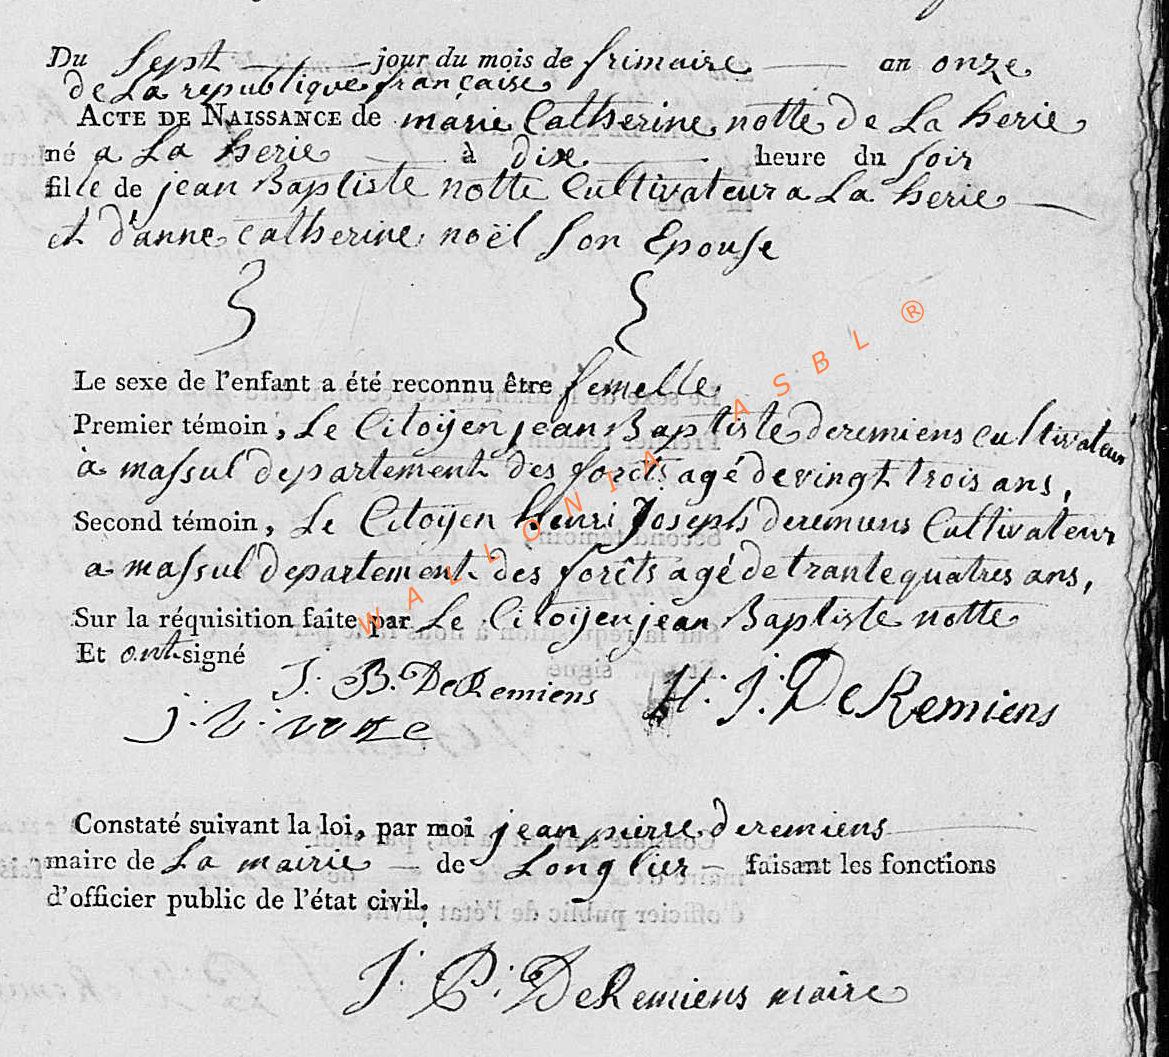 Du Sept jour du mois de frimaire an onze
de La republique française
ACTE DE NAISSANCE de marie Catherine notte de La herie
né a La herie à dix heure du soir
fille de jean Baptiste notte Cultivateur a La herie
et d'anne catherine noël son Epouse
Le sexe de l'enfant a été reconnu être femelle
Premier témoin, Le Citoyen jean Baptiste deremiens cultivateur
à massul departement des forêts agé de vingt trois ans,
Second témoin, Le Citoyen Henri Joseph deremiens Cultivateur
a massul departement des forêts agé de trante quatres ans,
Sur la réquisition faite par Le Citoyen jean Baptiste notte
Et ont signé
J. B. DeRemiens H. J. DeRemiens
j. b. notte
Constaté suivant la loi, par moi jean pierre deremiens
maire de La mairie de Longlier faisant les fonctions
d'officier public de l'état civil.
J. P. DeRemiens maire
WALLONIA ASBL ®